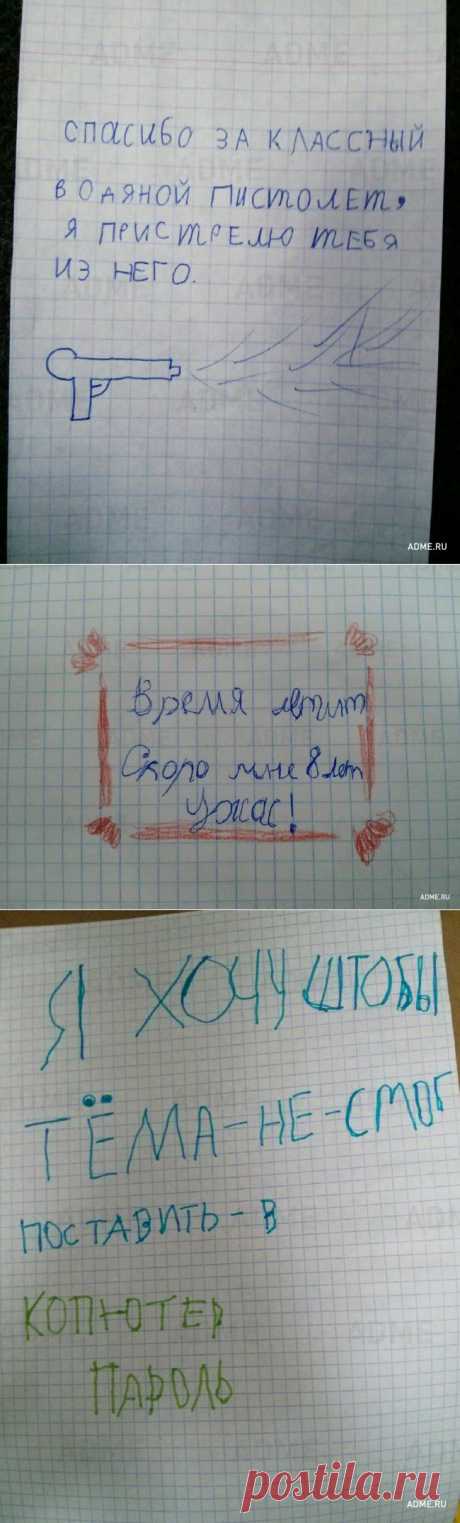 СПАСИБО ЗА КЛАССНЫЙ
ВОДЯНОЙ ПИСТОЛЕТ,
Я ПРИСТРЕЛЮ ТЕБЯ
ИЗ НЕГО.
ADME.RU
Время летит
Скоро мне 8 лет
Ужас!
ADME.RU
Я ХОЧУ ШТОБЫ
ТЁМА-НЕ-СМОГ
ПОСТАВИТЬ-В
КОПЮТЕР
ПАРОЛЬ
postila.ru
ADME.RU